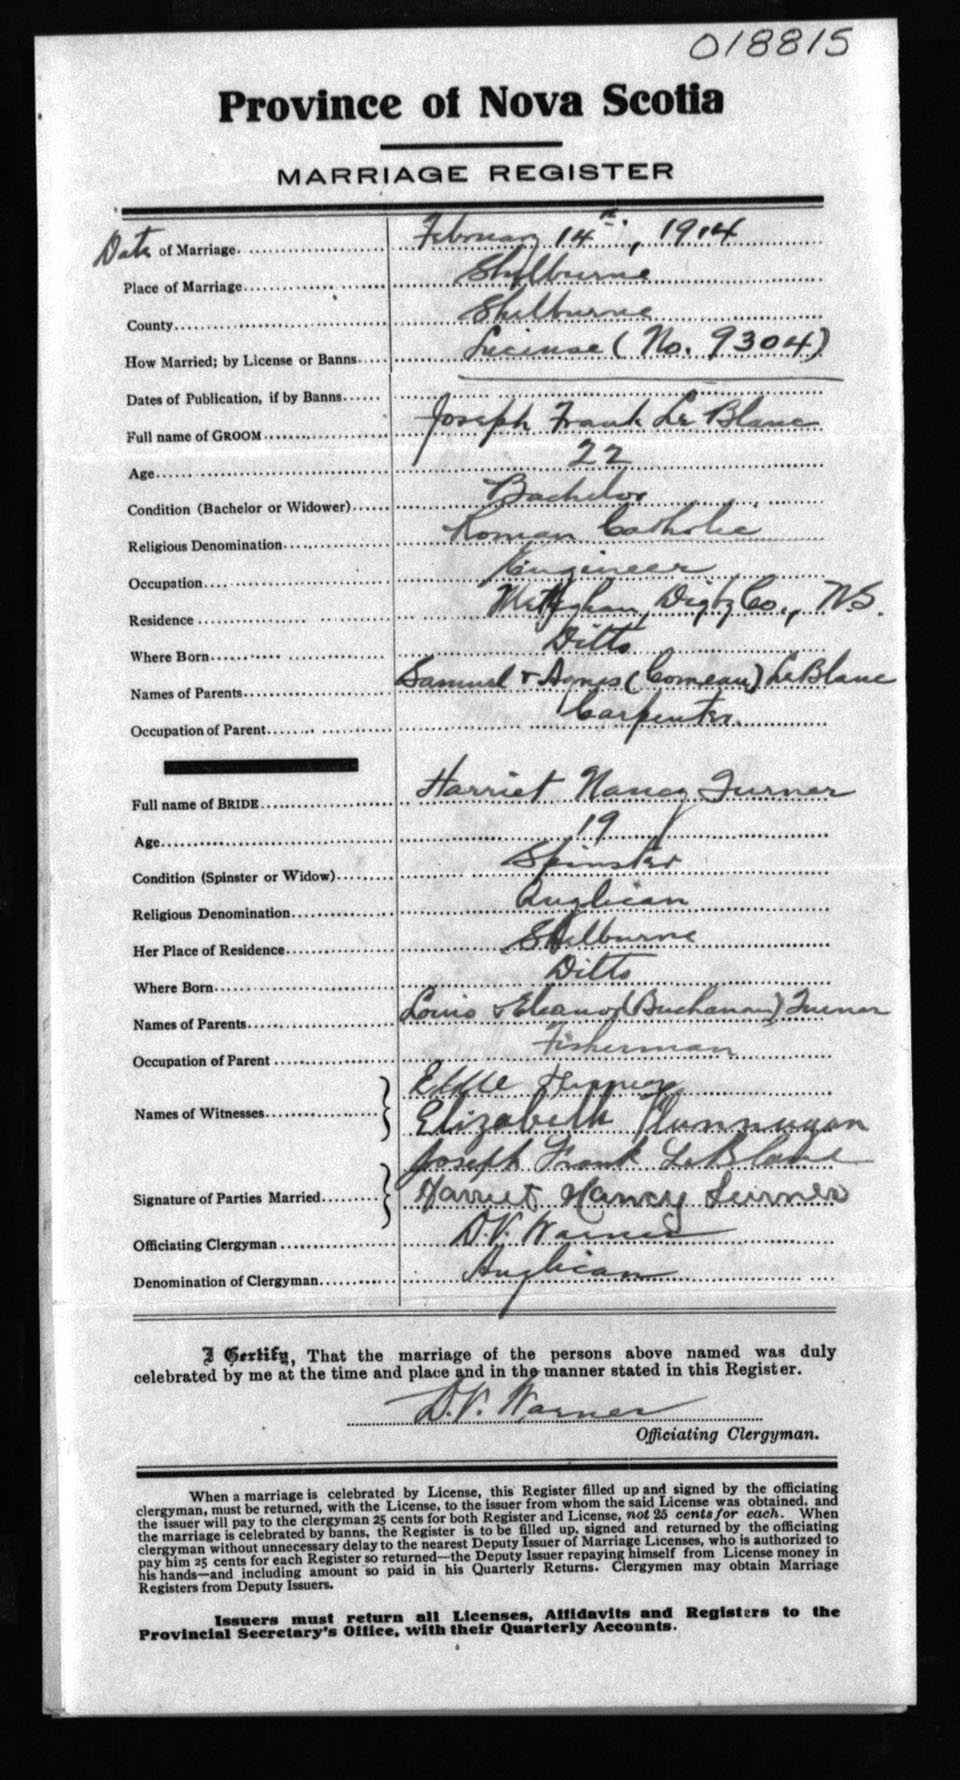 018815
Province of Nova Scotia
MARRIAGE REGISTER
Date of Marriage February 14th, 1914
Place of Marriage Shelburne
County Shelburne
How Married; by License or Banns License (No. 9304)
Dates of Publication, if by Banns
Full name of GROOM Joseph Frank Le Blanc
Age 22
Condition (Bachelor or Widower) Bachelor
Religious Denomination Roman Catholic
Occupation Engineer
Residence Meteghan, Digby Co., N.S.
Where Born Ditto
Names of Parents Samuel & Agnes (Comeau) LeBlanc
Occupation of Parent Carpenter
Full name of BRIDE Harriet Nancy Turner
Age 19
Condition (Spinster or Widow) Spinster
Religious Denomination Anglican
Her Place of Residence Shelburne
Where Born Ditto
Names of Parents Louis & Eleanor (Buchanan) Turner
Occupation of Parent Fisherman
Names of Witnesses
Elizabeth
Joseph Frank LeBlanc
Signature of Parties Married Harriet Nancy Turner
Officiating Clergyman D.V. Warner
Denomination of Clergyman Anglican
I Certify, That the marriage of the persons above named was duly
celebrated by me at the time and place and in the manner stated in this Register.
D.V. Warner
Officiating Clergyman.
When a marriage is celebrated by License, this Register filled up and signed by the officiating
clergyman, must be returned, with the License, to the issuer from whom the said License was obtained, and
the issuer will pay to the clergyman 25 cents for both Register and License, not 25 cents for each. When
the marriage is celebrated by banns, the Register is to be filled up, signed and returned by the officiating
clergyman without unnecessary delay to the nearest Deputy Issuer of Marriage Licenses, who is authorized to
pay him 25 cents for each Register so returned—the Deputy Issuer repaying himself from License money in
his hands—and including amount so paid in his Quarterly Returns. Clergymen may obtain Marriage
Registers from Deputy Issuers.
Issuers must return all Licenses, Affidavits and Registers to the
Provincial Secretary's Office, with their Quarterly Accounts.